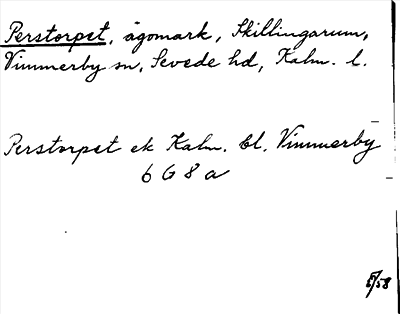 Perstorpet, ägomark, Skillingarum,
Vimmerby sn, Sevede hd, Kalm. l.
Perstorpet ek Kalm. bl. Vimmerby
6 G 8 a
5/58